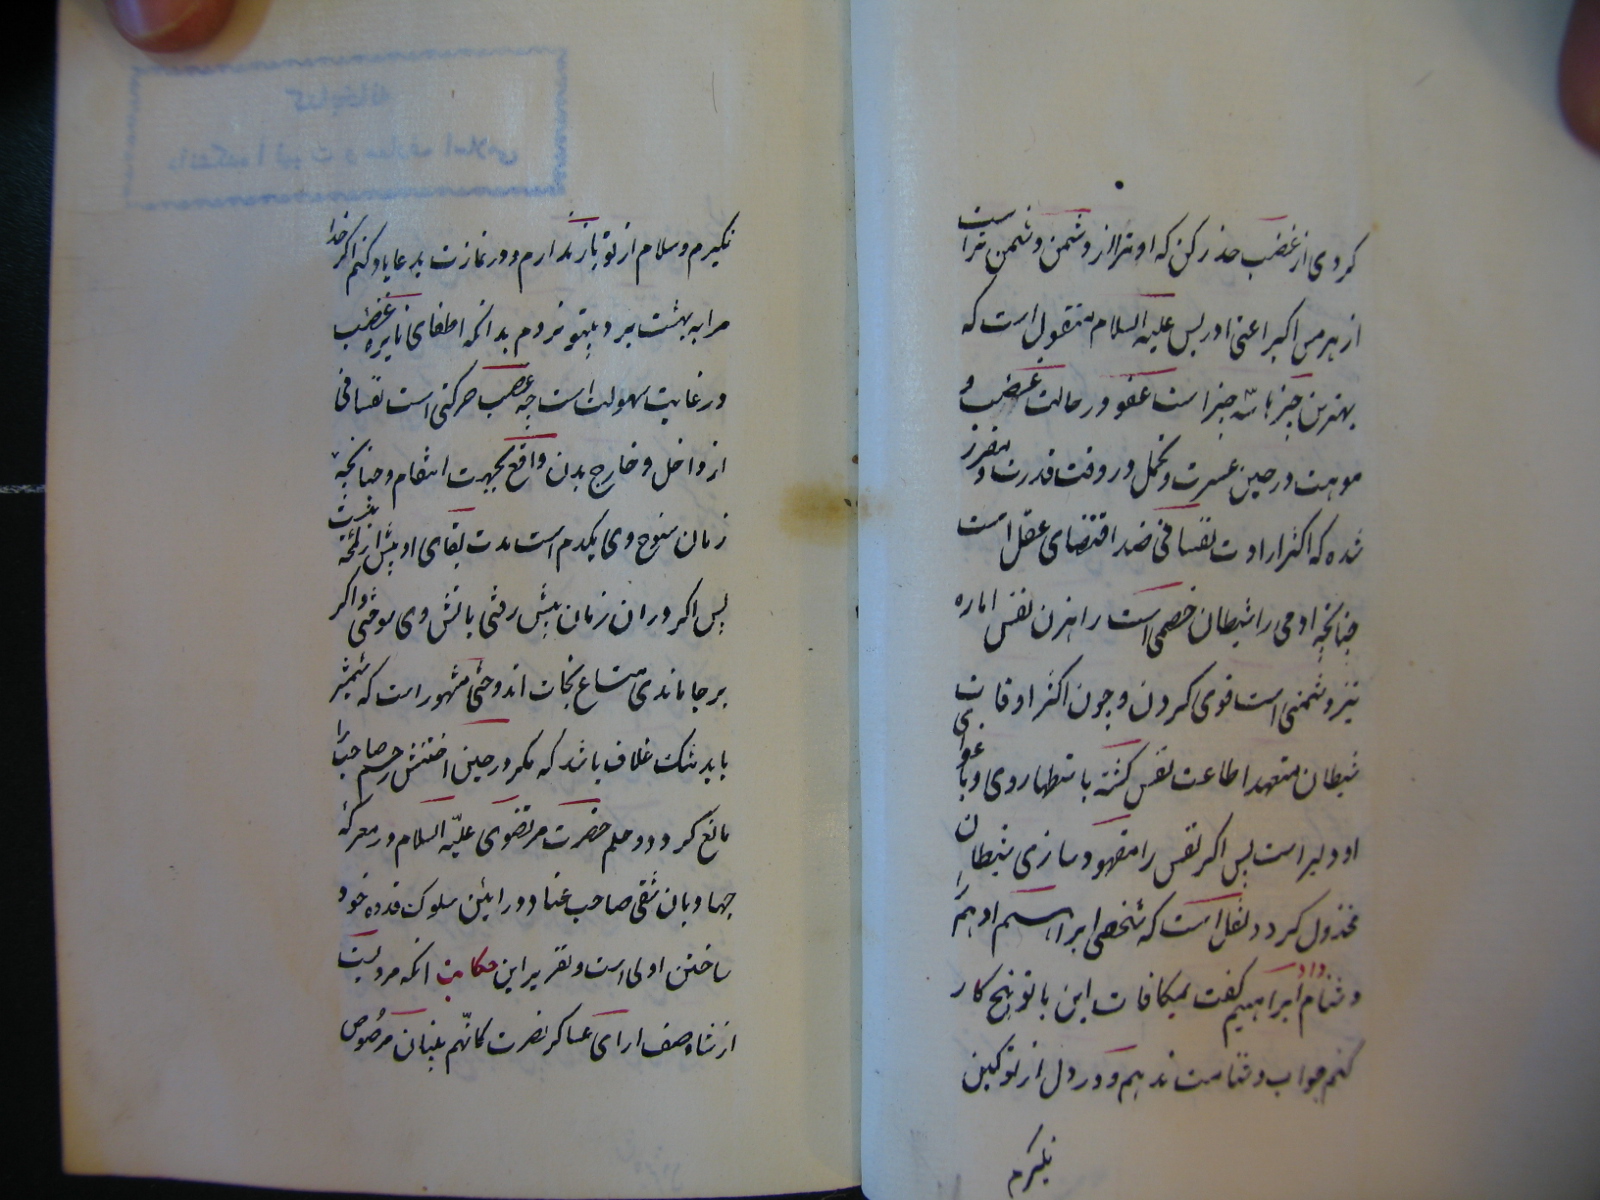 کردی از غضب حذر کن که او ترا از دشمن دشمن تر است
از هرمس اکبر اعنی ادریس علیه السلام منقول است که
بهترین چیزها سه چیز است عفو در حالت غضب و
موهبت در حین عسرت و تحمل در وقت قدرت و مقرر
شده که اکثر ارادت نفسانی ضد اقتضای عقل است
چنانچه ادمی را شیطان خصمی است راهزن نفس اماره
نیز دشمنی است قوی کردن و چون اکثر اوقات
شیطان متعهد اطاعت نفس کشته باستظهار وی و باغوای
او دلیر است پس اکر نفس را مقهور سازی شیطان
مخذول کردد نقل است که شخصی ابراهیم ادهم را
دشنام داد ابراهیم کفت بمکافات این با تو پنج کار
کنم جواب دشنامت ندهم و در دل از تو کین
نکیرم
نکیرم و سلام از تو باز ندارم و در نمازت بدعا یاد کنم اکر خدا
مرا به بهشت برد بیتو نروم بدانکه اطفای نایره غضب
در غایت سهولت است چه غضب حرکتی است نفسانی
از داخل و خارج بدن واقع بجهت انتقام و چنانچه
زمان سنوح وی یکدم است مدت بقای او بیش از لمحه نیست
پس اکر در ان زمان پیش رفتی باتش وی سوختی و اکر
بر جا ماندی متاع نجات اندوختی مشهور است که شمشیر
باید تنک غلاف باشد که مکر در حین اختنش رحم صاحب را
مانع کردد و حلم حضرت مرتضوی علیه السلام در معرکه
جهاد بان شقی صاحب عناد در این سلوک قدوه خود
ساختن اولی است و تقریر این حکایت انکه مردیست
از شاه صف ارای عساکر نصرت کانهم بنیان مرصوص